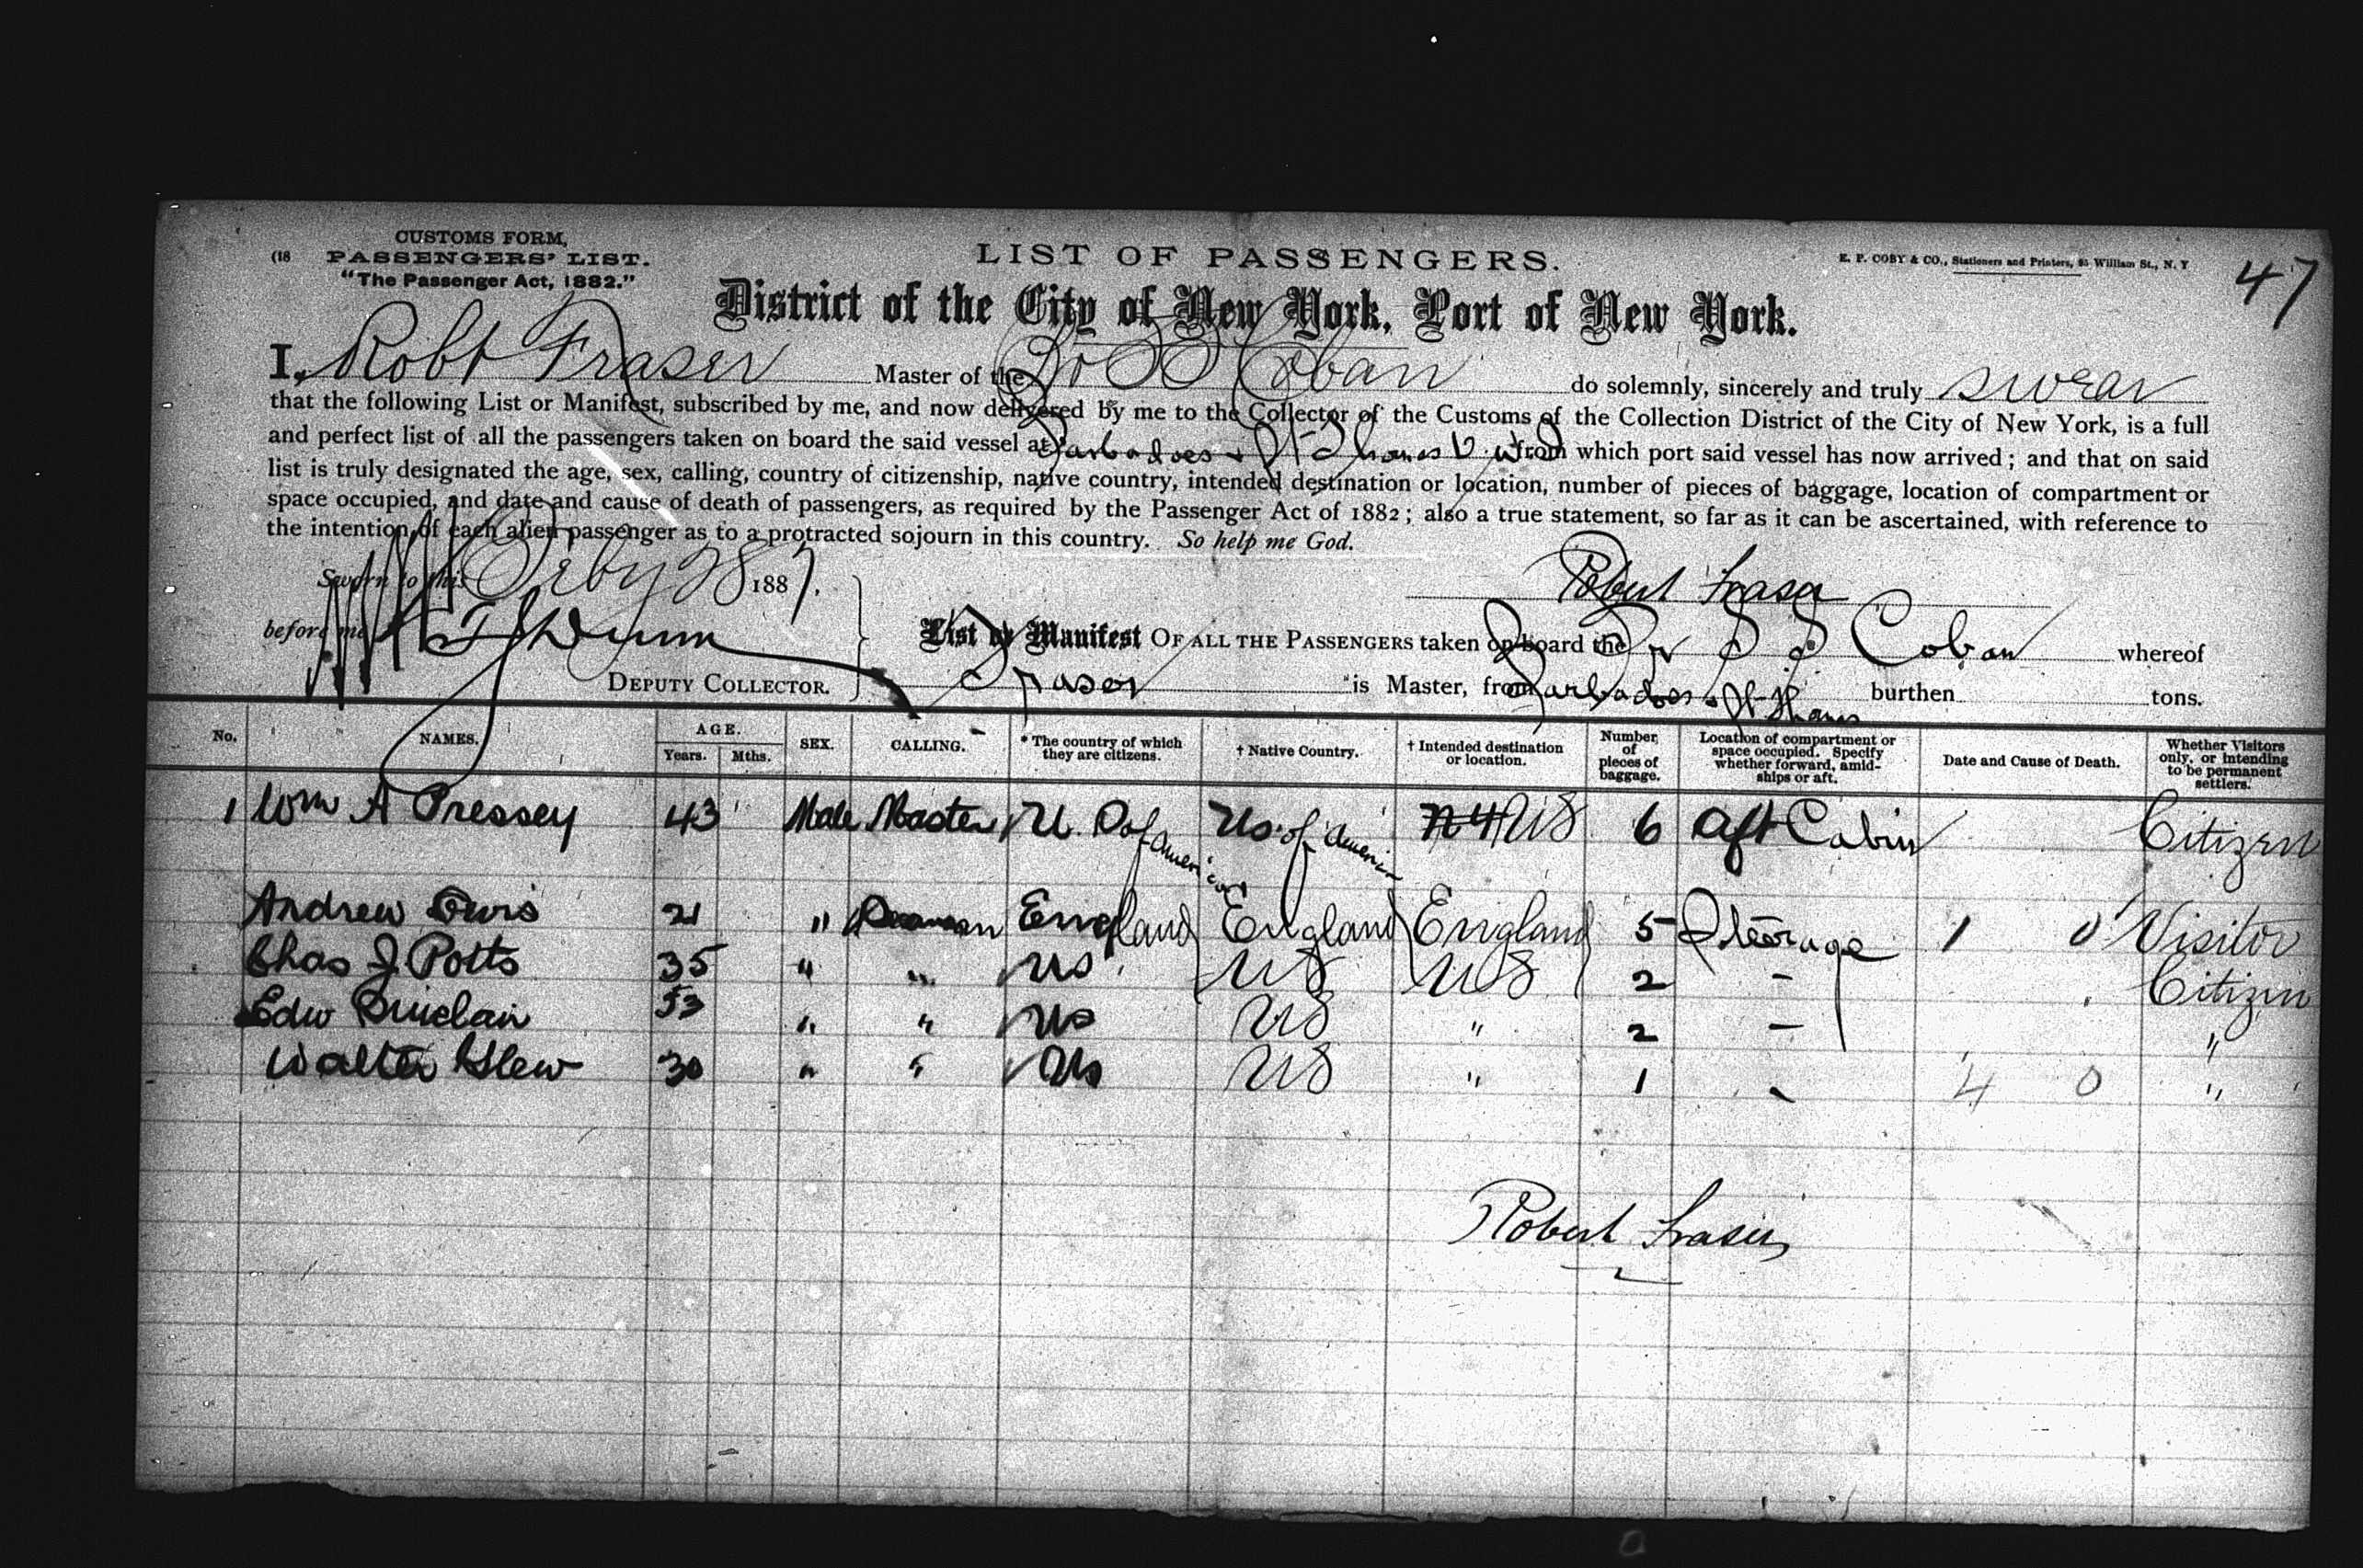 CUSTOMS FORM,
(18 PASSENGERS' LIST.
"The Passenger Act, 1882."
LIST OF PASSENGERS.
E. P. COBY & CO., Stationers and Printers, 95 William St., N. Y
47
District of the City of New York, Port of New York.
I, Robt Fraser Master of the Br SS Coban do solemnly, sincerely and truly swear
that the following List or Manifest, subscribed by me, and now delivered by me to the Collector of the Customs of the Collection District of the City of New York, is a full
and perfect list of all the passengers taken on board the said vessel at Barbadoes & St Thomas from which port said vessel has now arrived; and that on said
list is truly designated the age, sex, calling, country of citizenship, native country, intended destination or location, number of pieces of baggage, location of compartment or
space occupied, and date and cause of death of passengers, as required by the Passenger Act of 1882; also a true statement, so far as it can be ascertained, with reference to
the intention of each alien passenger as to a protracted sojourn in this country. So help me God.
Sworn to this Feby 28 1887.
Robert Fraser
before me
List or Manifest OF ALL THE PASSENGERS taken on board the Br S S Coban whereof
DEPUTY COLLECTOR.
Fraser is Master, from Barbadoes & St Thomas burthen tons.
No. NAMES. AGE. Years. Mths. SEX. CALLING. * The country of which they are citizens. † Native Country. † Intended destination or location. Number of pieces of baggage. Location of compartment or space occupied. Specify whether forward, amidships or aft. Date and Cause of Death. Whether Visitors only, or intending to be permanent settlers.
1 Wm A Pressey 43 Male Master U. S of America Us of America NY US 6 Aft Cabin Citizen
Andrew 21 " Seaman England England England 5 Steerage 1 0 Visitor
Chas J Potts 35 " " US US US 2 - Citizen
Edw Sinclair 53 " " US US " 2 - "
Walter Slew 30 " " US US " 1 - 4 0 "
Robert Fraser